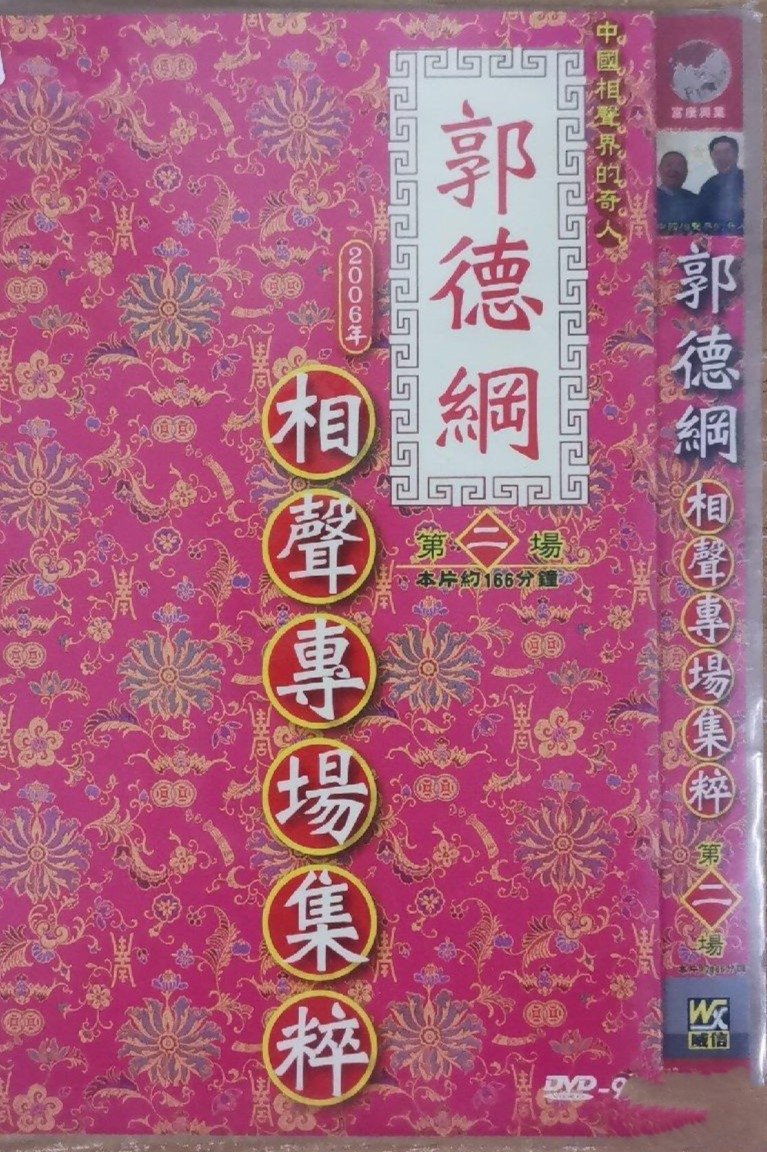 中國相聲界的奇人
郭德綱
2006年
相聲專場集粹
第二場
本片約166分鐘
DVD-9
富康興業
郭德綱
相聲專場集粹
第二場
WX
威信